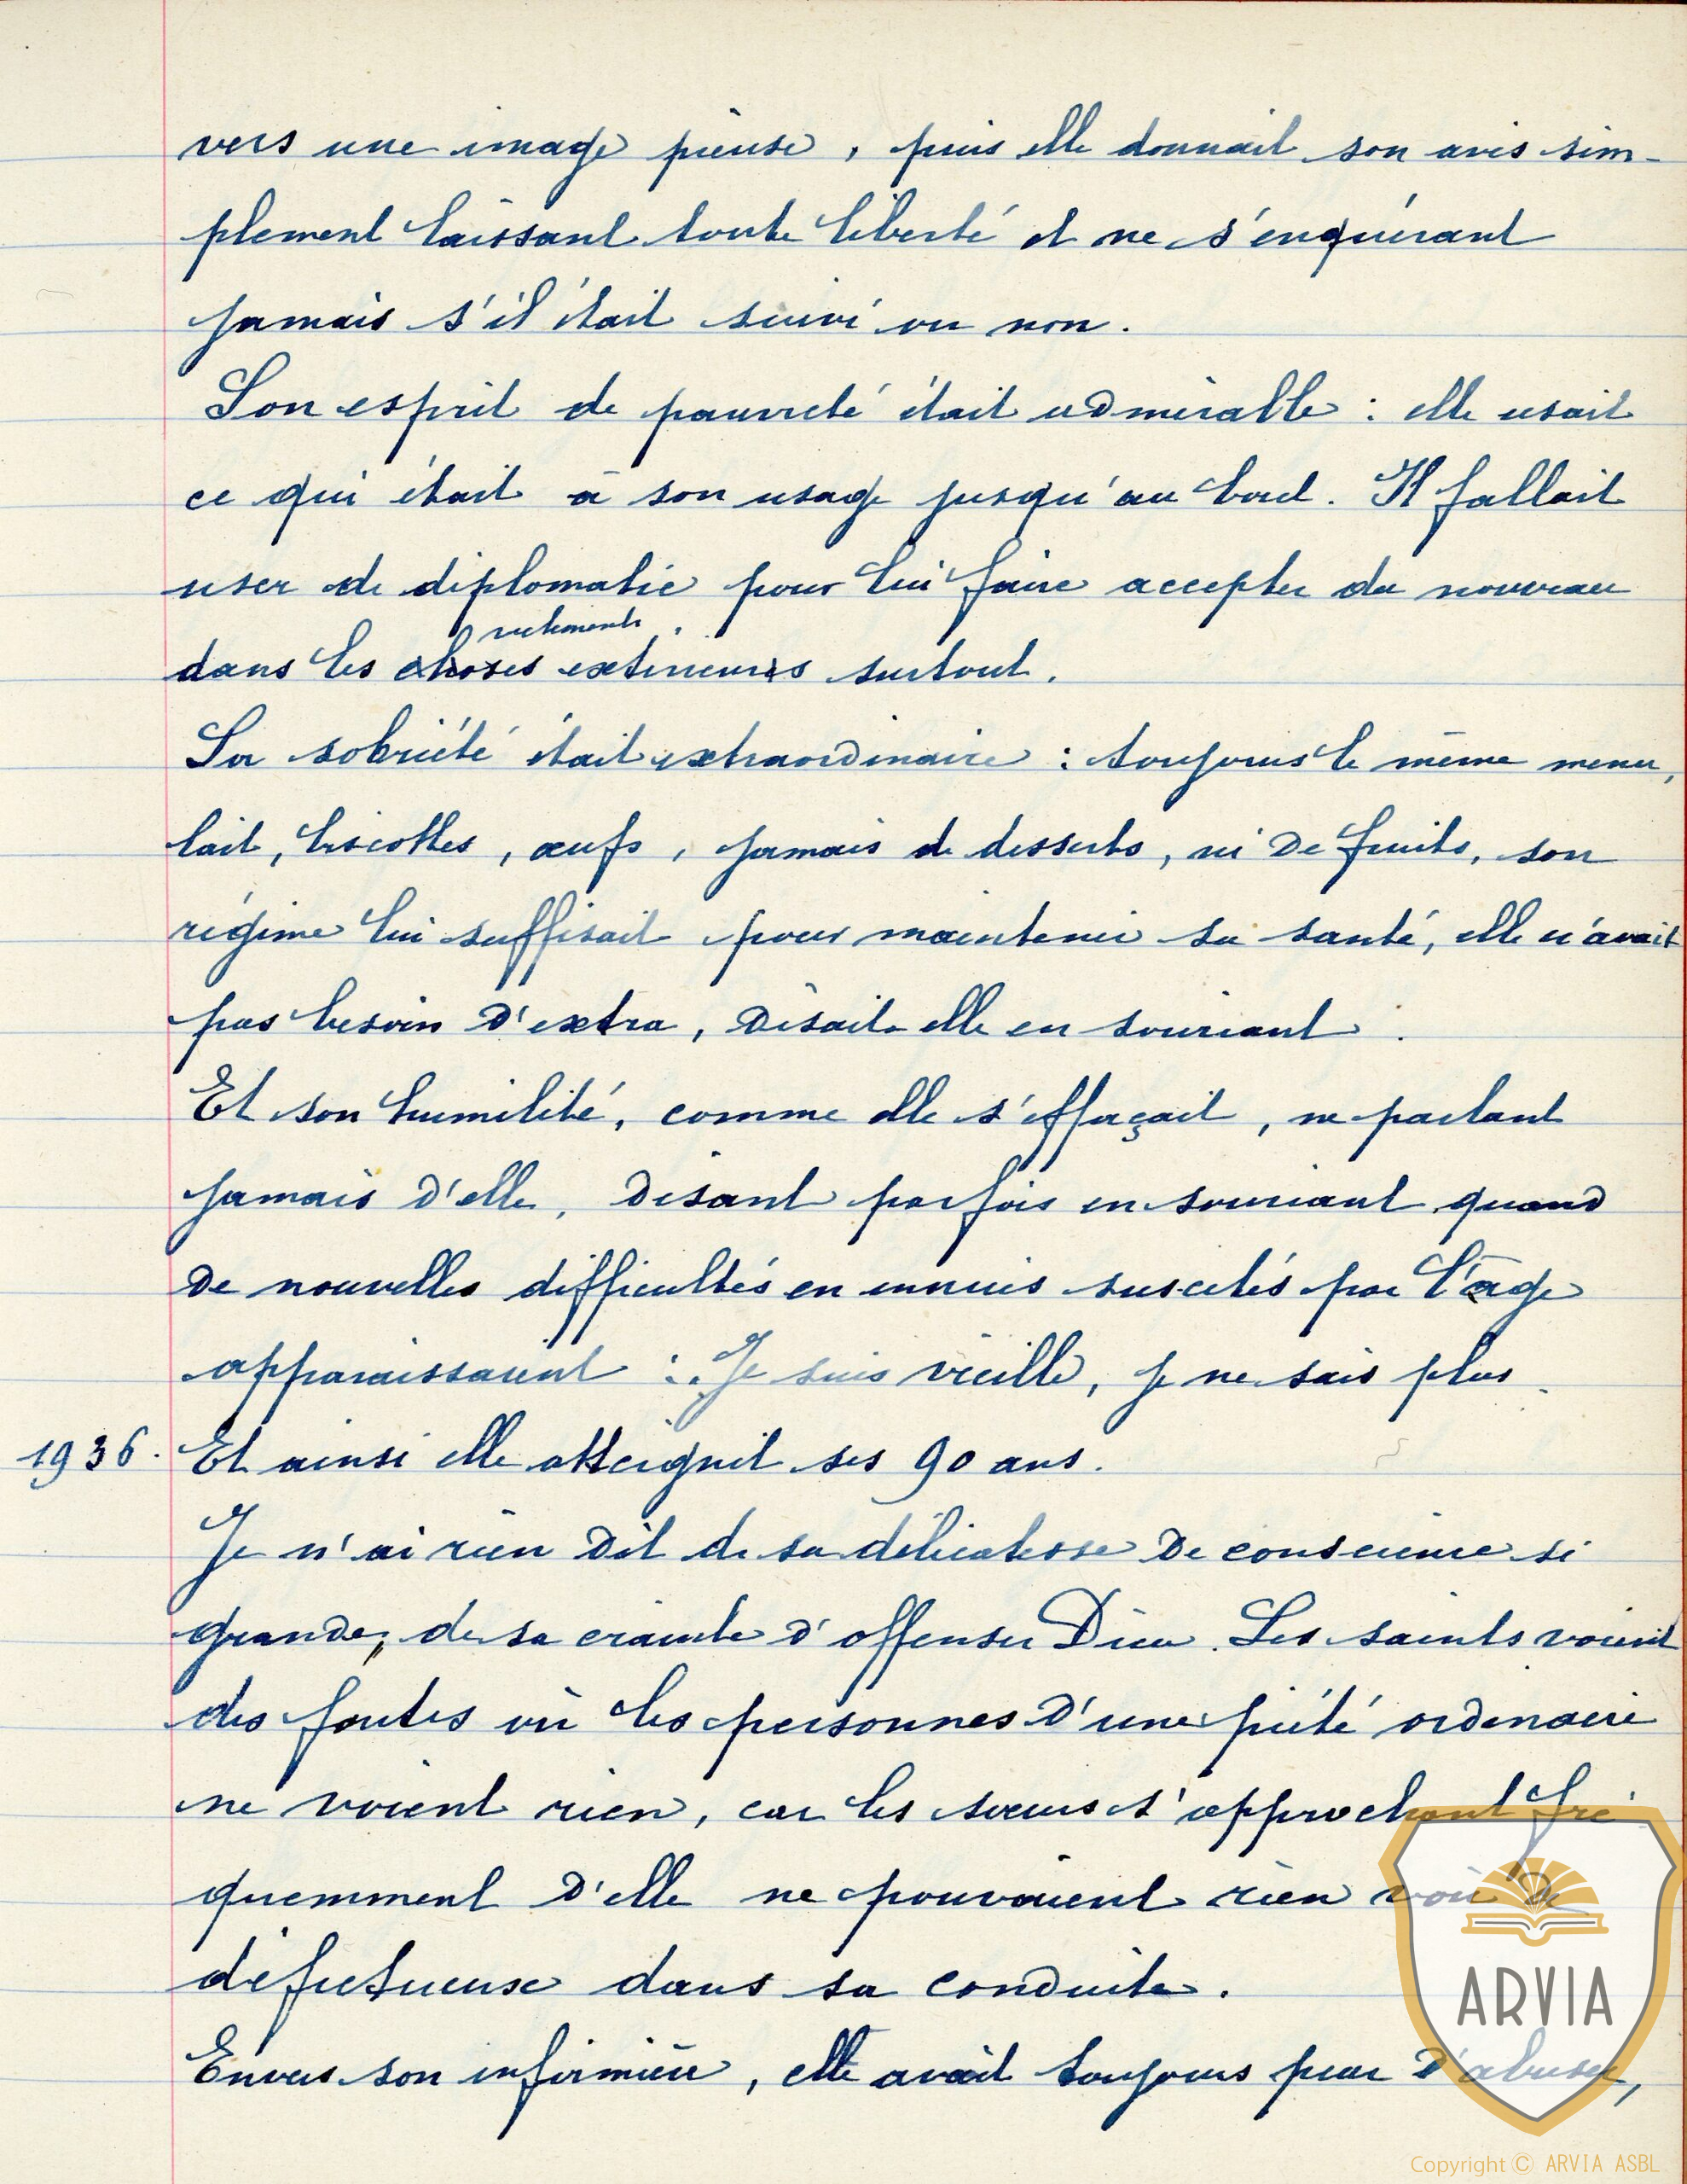 vers une image pieuse, puis elle donnait son avis sim-
plement laissant toute liberté et ne s'enquérant
jamais s'il était suivi ou non.
Son esprit de pauvreté était admirable : elle usait
ce qui était à son usage jusqu'au bout. Il fallait
user de diplomatie pour lui faire accepter du nouveau
vêtements
dans les choses extérieures surtout.
Sa sobriété était extraordinaire : toujours le même menu,
lait, biscottes, œufs, jamais de desserts, ni de fruits, son
régime lui suffisait pour maintenir sa santé, elle n'avait
pas besoin d'extra, disait-elle en souriant.
Et son humilité, comme elle s'effaçait, ne parlant
jamais d'elle, disant parfois en souriant quand
de nouvelles difficultés en ennuis suscités par l'âge
apparaissaient : Je suis vieille, je ne sais plus.
1936. Et ainsi elle atteignit ses 90 ans.
Je n'ai rien dit de sa délicatesse de conscience si
grande, de sa crainte d'offenser Dieu. Les saints voient
des fautes où les personnes d'une piété ordinaire
ne voient rien, car les sœurs s'approchant fré
quemment d'elle ne pouvaient rien voir de
défectueuse dans sa conduite.
Envers son infirmière, elle avait toujours peur d'abuser,
ARVIA
Copyright © ARVIA ASBL